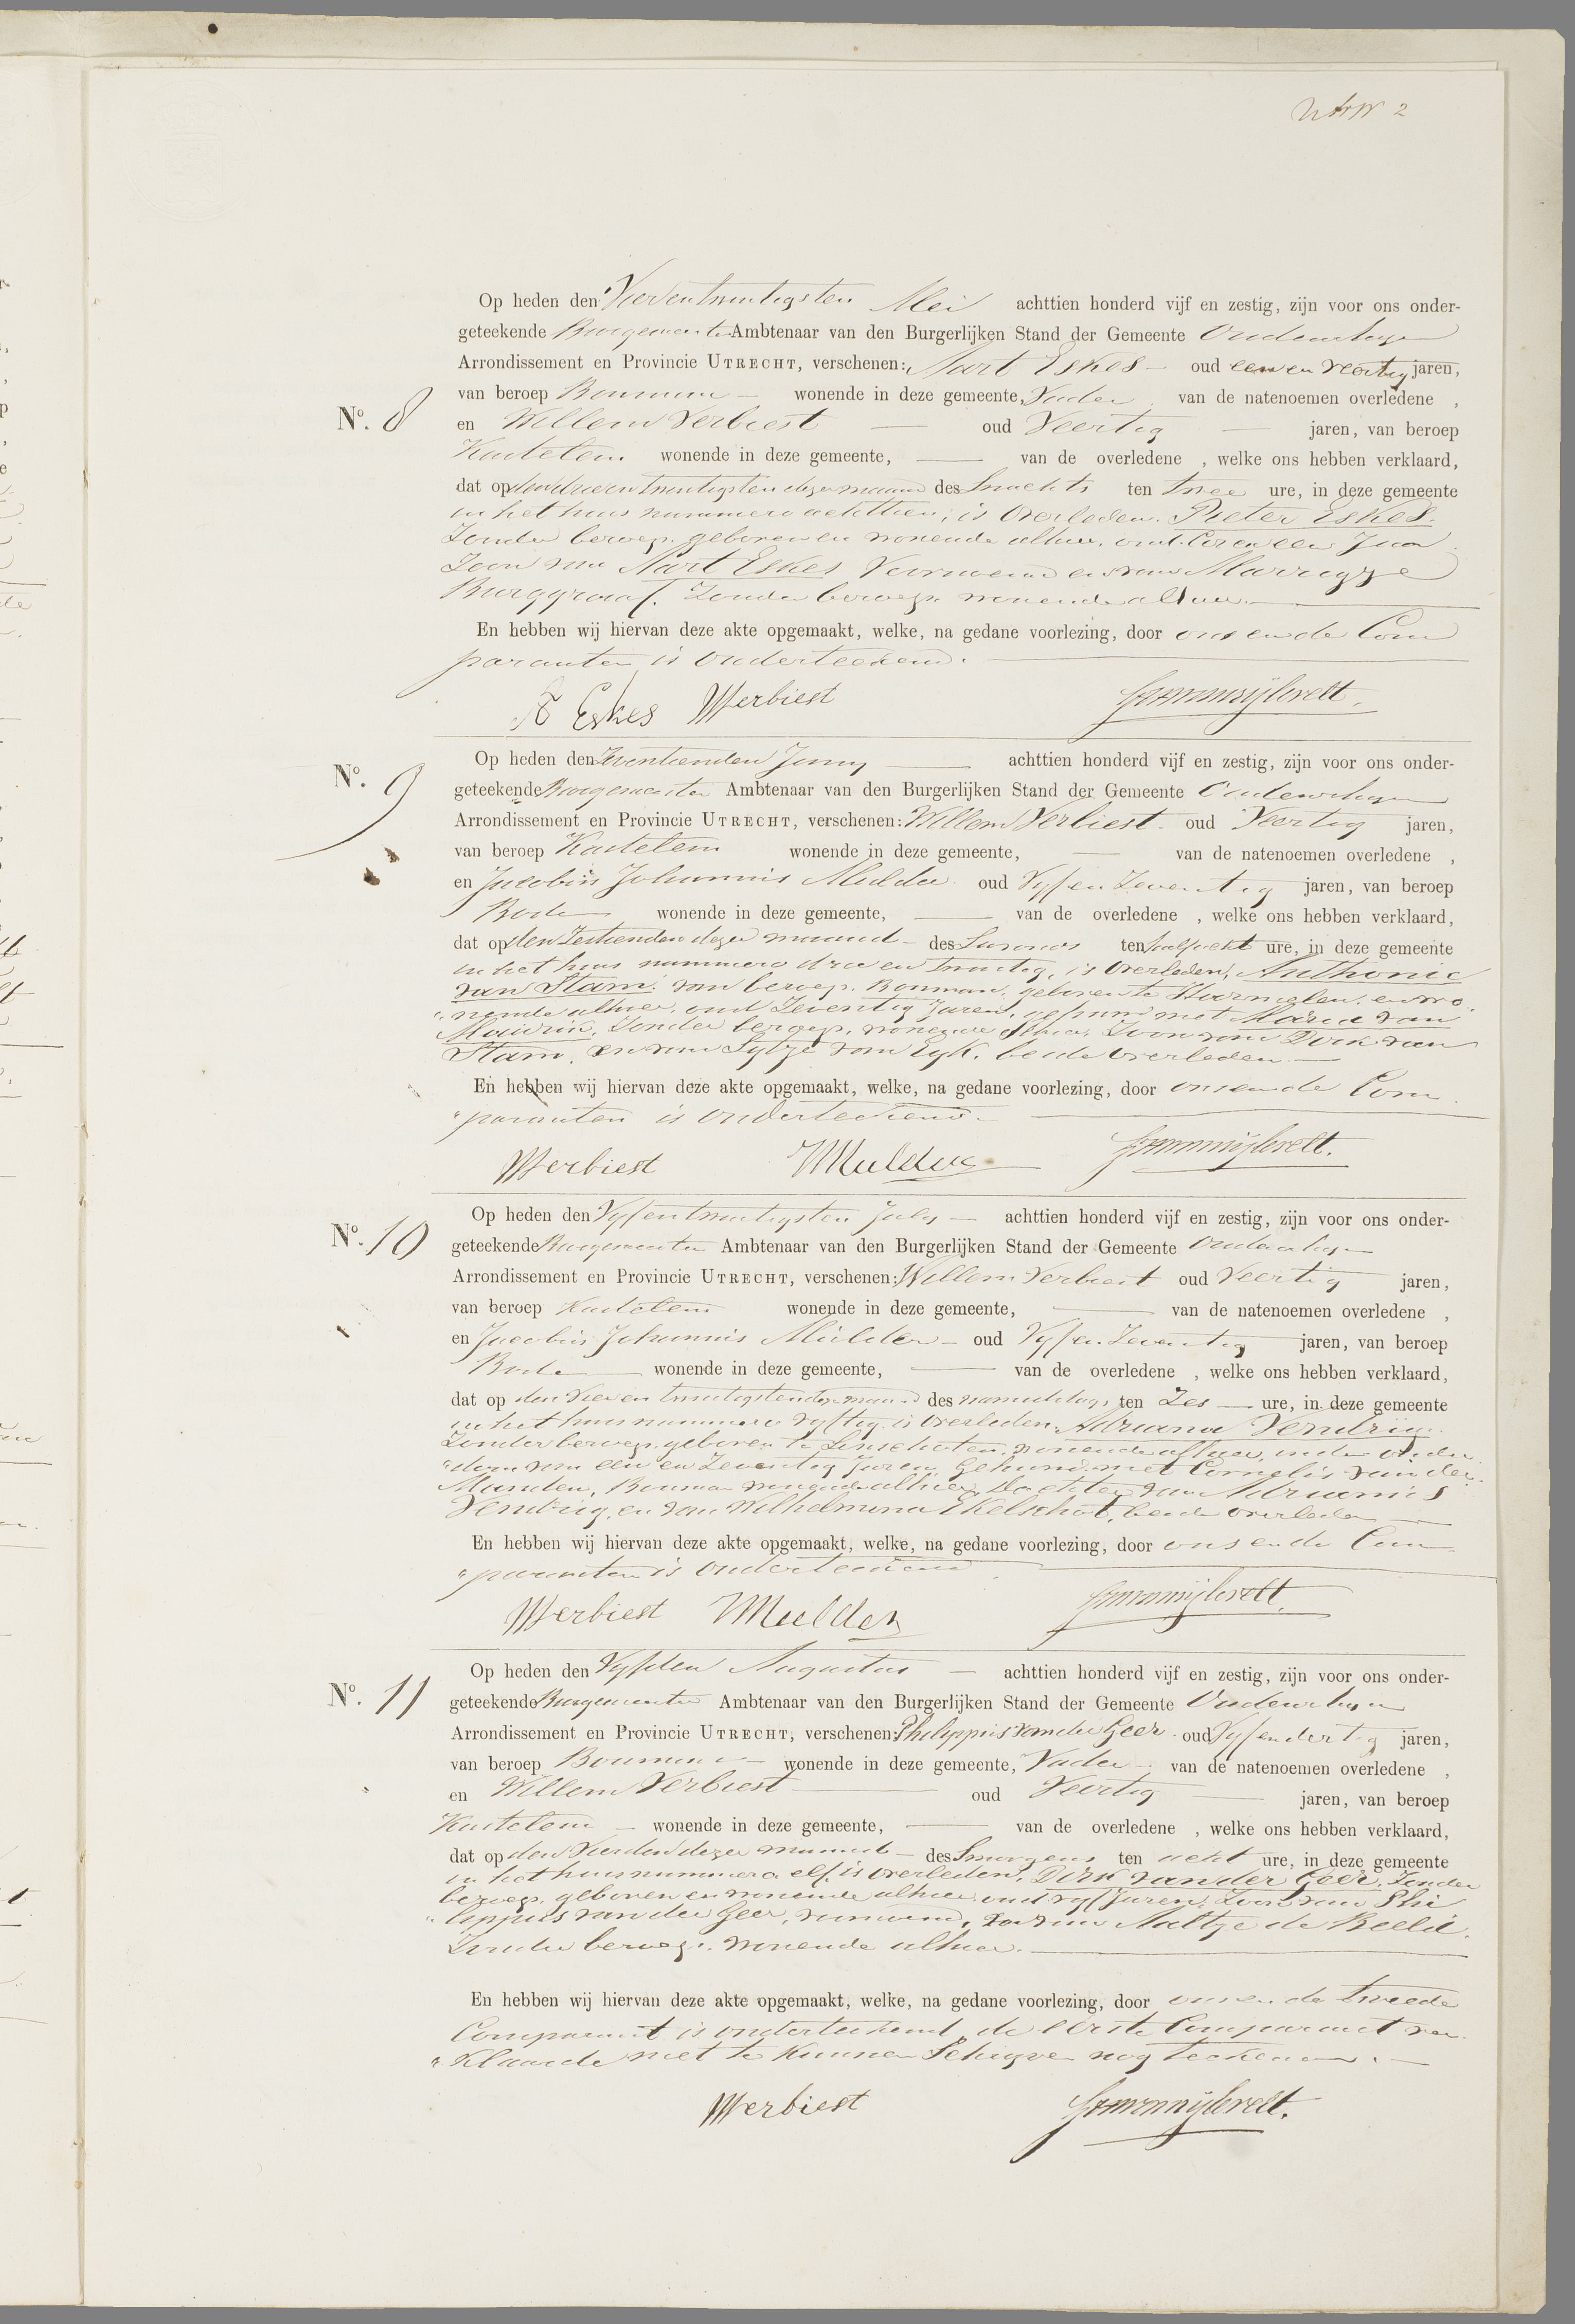 2
Op heden den Vierentwintigsten Mei achttien honderd vijf en zestig, zijn voor ons onder-
geteekende Burgemeester Ambtenaar van den Burgerlijken Stand der Gemeente Oudenrhyn
Arrondissement en Provincie UTRECHT, verschenen: Aart Eskes — oud een en veertig jaren,
van beroep Bouwman — wonende in deze gemeente, Vader van de natenoemen overledene ,
No. 8
en Willem Verbiest — oud Veertig — jaren, van beroep
Kastelein wonende in deze gemeente, — van de overledene , welke ons hebben verklaard,
dat op den drieentwintigsten dezer maand des Snachts ten twee ure, in deze gemeente
in het huis nummero achttien, is Overleden. Pieter Eskes.
Zonder beroep. geboren en wonende alhier, oud een Jaar
Zoon van Aart Eskes Voornoemd en van Marrigje
Burggraaf. Zonder beroep. wonende alhier. —
En hebben wij hiervan deze akte opgemaakt, welke, na gedane voorlezing, door ons en de Com
paranten is Onderteekend. —
A Eskes WVerbiest
Op heden den Zeventienden Juny — achttien honderd vijf en zestig, zijn voor ons onder-
No. 9
geteekende Burgemeester Ambtenaar van den Burgerlijken Stand der Gemeente Oudenrhyn
Arrondissement en Provincie UTRECHT, verschenen: Willem Verbiest. oud Veertig jaren,
van beroep Kastelein wonende in deze gemeente, — van de natenoemen overledene ,
en Jacobus Johannis Mulder oud Vyf en Zeventig jaren, van beroep
Bode wonende in deze gemeente, — van de overledene , welke ons hebben verklaard,
dat op den Zestienden dezer maand — des Savonds ten half acht ure, in deze gemeente
in het huis nummero drie en twintig, is Overleden, Anthonie
van Stam. van beroep. Bouwman. geboren te Harmelen. en wo
„nende alhier, oud Zeventig Jaren, gehuwd met Maria van
Mourik, Zonder beroep, wonende alhier, Zoon van Dirk van
Stam, en van Sytje van Eyk. beide overleden —
En hebben wij hiervan deze akte opgemaakt, welke, na gedane voorlezing, door ons en de Com
„paranten is Onderteekend. —
WVerbiest Mulder
Op heden den Vyfentwintigsten July — achttien honderd vijf en zestig, zijn voor ons onder-
No. 10
geteekende Burgemeester Ambtenaar van den Burgerlijken Stand der Gemeente Oudenrhyn
Arrondissement en Provincie UTRECHT, verschenen: Willem Verbiest oud Veertig jaren,
van beroep Kastelein wonende in deze gemeente, — van de natenoemen overledene ,
en Jacobus Johannis Mulder — oud Vyf en Zeventig jaren, van beroep
Bode wonende in deze gemeente, — van de overledene , welke ons hebben verklaard,
dat op den Vier en twintigsten dezer maand des namiddags ten Zes — ure, in deze gemeente
in het huis nummero vyftig is Overleden. Adriana Vendrig.
Zonder beroep. geboren te Linschoten. wonende alhier, in den ouder
„dom van een en Zeventig Jaren, gehuwd met Cornelis van der
Manden, Bouwman wonende alhier, Dochter van Adrianus
Vendrig, en van Wilhelmina Ekelschot, beide overleden —
En hebben wij hiervan deze akte opgemaakt, welke, na gedane voorlezing, door ons en de Com
„paranten is Onderteekend —
WVerbiest Mulder
Op heden den Vyfden Augustus — achttien honderd vijf en zestig, zijn voor ons onder-
No. 11
geteekende Burgemeester Ambtenaar van den Burgerlijken Stand der Gemeente Oudenrhyn
Arrondissement en Provincie UTRECHT, verschenen: Philippus van der Geer. oud Vyf en dertig jaren,
van beroep Bouwman — wonende in deze gemeente, Vader — van de natenoemen overledene ,
en Willem Verbiest — oud Veertig — jaren, van beroep
Kastelein — wonende in deze gemeente, — van de overledene , welke ons hebben verklaard,
dat op den Vierden dezer maand — des Smorgens ten acht ure, in deze gemeente
in het huis nummero elf, is overleden, Dirk van der Geer, Zonder
beroep. geboren en wonende alhier oud vyf Jaren, Zoon van Phi
„lippus van der Geer, voornoemd, en van Aaltje de Beelie.
Zonder beroep. wonende alhier. —
En hebben wij hiervan deze akte opgemaakt, welke, na gedane voorlezing, door ons en de tweede
Comparant is onderteekend, de eerste Comparant ver
„klaarde niet te kunnen Schryven nog teekenen. —
WVerbiest